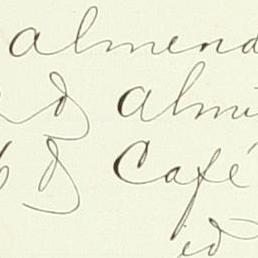 almend
d almi
d Café
id